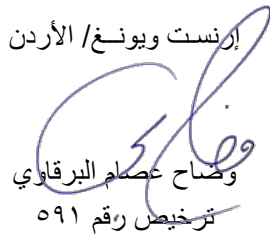 إرنست ويونــغ/ الأردن
وضاح عصام البرقاوي
ترخيص رقم ٥٩١